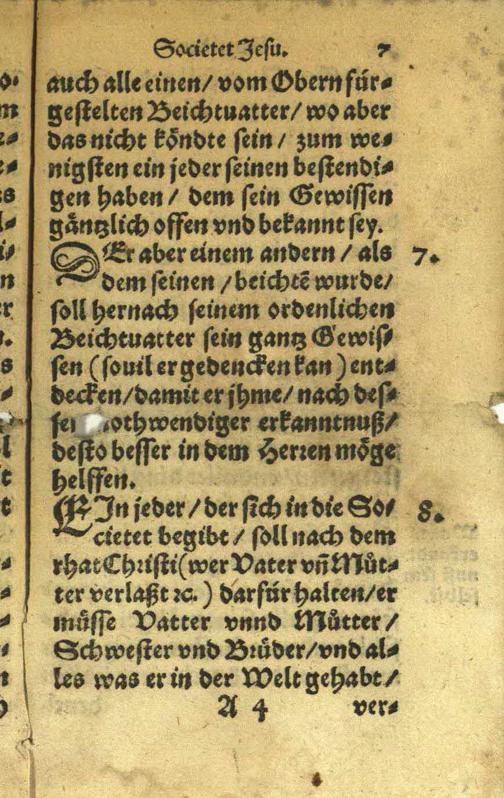 Societet Jesu. 7
auch alle einen/ vom Obern für⸗
gestelten Beichtuatter/ wo aber
das nicht köndte sein/ zum we⸗
nigsten ein jeder seinen bestendi⸗
gen haben/ dem sein Gewissen
gäntzlich offen vnd bekannt sey.
DEr aber einem andern/ als 7.
dem seinen/ beichtē wurde/
soll hernach seinem ordenlichen
Beichtuatter sein gantz Gewis⸗
sen (souil er gedencken kan) ent⸗
decken/ damit er jhme/ nach des⸗
nothwendiger erkanntnuß/
desto besser in dem Herren möge
helffen.
EIn jeder/ der sich in die So⸗ 8.
cietet begibt/ soll nach dem
rhat Christi (wer Vater vn̄ Můt⸗
ter verlaßt ꝛc.) darfür halten/ er
müsse Vatter vnnd Můtter/
Schwester vnd Brüder/ vnd al⸗
les was er in der Welt gehabt/
A 4 ver⸗